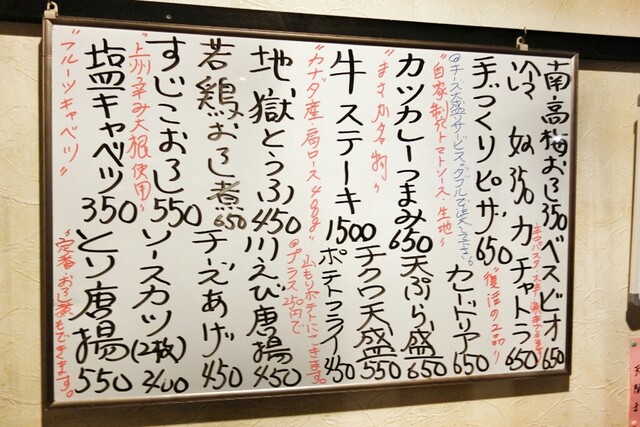 南高梅おろし 350
冷奴 350
手づくりピザ 650
"自家製トマトソース・生地"
カツカレーつまみ 650
"まさかの名物"
牛ステーキ 1500
"カナダ産・肩ロース400g"
地獄とうふ 450
若鶏おろし煮 650
すじこおろし 550
"上州辛み大根使用"
塩キャベツ 350
"フルーツキャベツ"
ベスビオ 650
カチャトラ 650
"復活の2品"
カレードリア 650
天ぷら盛 650
チクワ天盛 550
ポテトフライ 450
@プラス250円で
山もりポテトにできます。
川えび唐揚 450
チーズあげ 450
ソースカツ(2枚) 400
とり唐揚 550
"定番・おろし煮もできます。